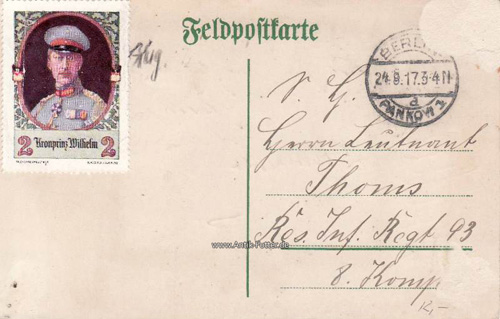 Feldpostkarte
2 Kronprinz Wilhelm 2
BERLIN
24.8.17.3-4N
a
PANKOW 1
S. H.
Herrn Leutnant
Thoms
Res. Inf. Regt. 93
8. Komp.
www.Antik-Potter.de